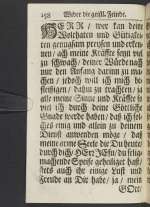 158 Wider die geistl. Feinde.
HERR / wer kan deine
Wolthaten und Gütigkei-
ten genugsam preysen und erken-
nen / ach meine Kräffte seynd viel
zu schwach / deiner Würde nach
nur den Anfang darinn zu ma-
chen / jedoch will ich mich be-
alle meine Sinne und Kräffte so
viel ich durch deine Göttliche
Gnade werde haben / daß ich sol-
ches einig und allein zu deinem
Dienst anwenden möge / daß
meine arme Seele die Du heute
durch dich / HErr JEsu / du selig
machende Speise geheiliget hast /
stets auch ihr einige Lust und
Freude an Dir habe / ja / mein
GOtt /